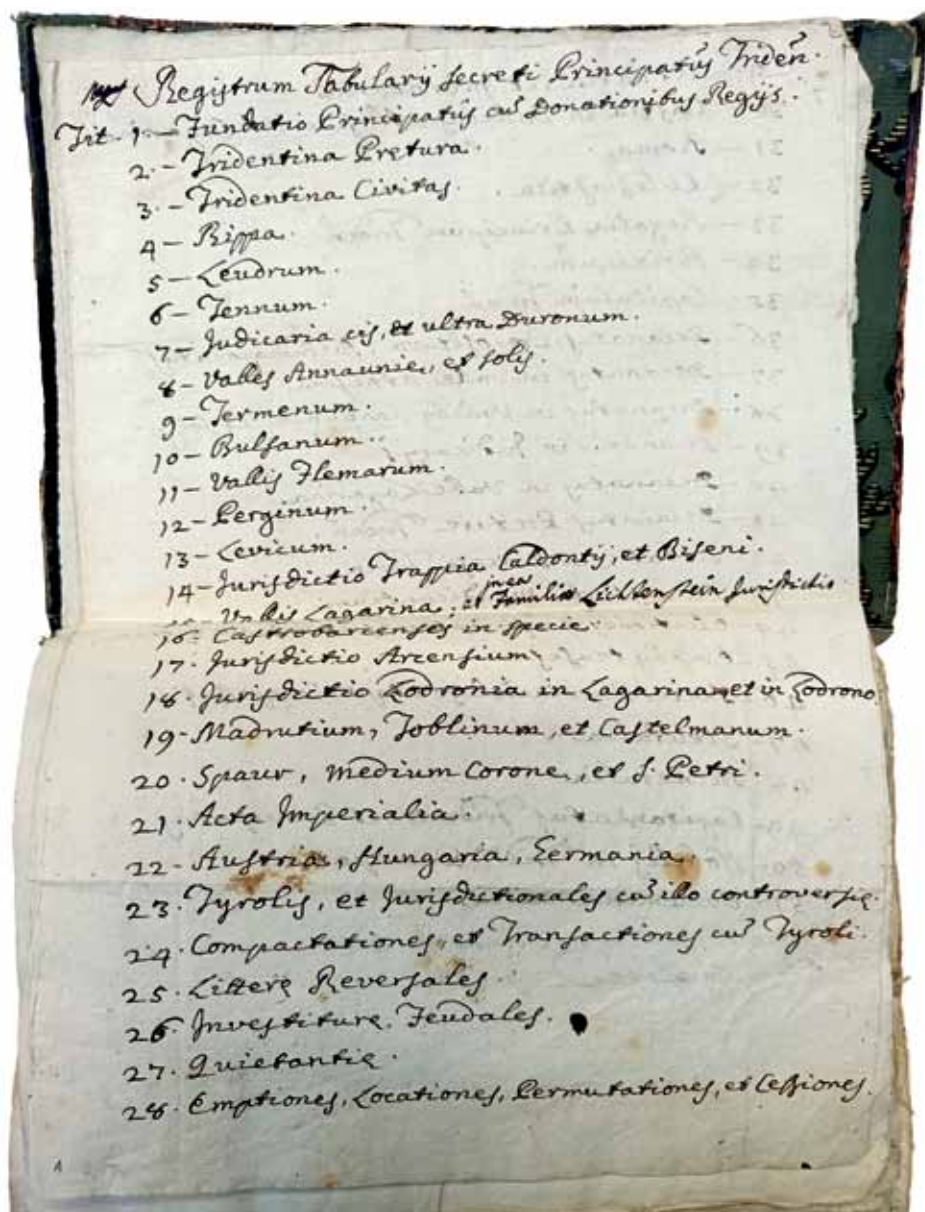 Registrum Tabularij secreti Principatûs Tridẽn.
Tit. 1. - Fundatio Principatûs cũ Donationibus Regijs.
2. - Tridentina Prętura.
3. - Tridentina Civitas.
4 - Rippa.
5 - Leudrum.
6 - Tennum.
7 - Judicaria cis, et ultra Duronum.
8 - Valles Annaunię, et solis.
9 - Termenum.
10 - Bulsanum.
11 - Vallis Flemarum.
12 - Perginum.
13 - Levicum.
14 - Jurisdictio Trappia Caldontij, et Biseni.
Vallis Lagarina, et in ea Familię Lichtenstein Jurisdictio
16 - Castrobarcenses in specie
17. Jurisdictio Arcensium
18. Jurisdictio Lodronia in Lagarina, et in Lodrono
19 - Madrutium, Toblinum, et Castelmanum.
20. Spaur, medium Coronę, et S. Petri.
21. Acta Imperialia.
22 - Austria, Hungaria, Germania.
23. Tyrolis, et Jurisdictionales cũ illo controversię.
24. Compactationes, et Transactiones cũ Tyroli.
25. Litterę Reversales.
26. Investiturę Feudales.
27. Quietantię.
28. Emptiones, Locationes, Permutationes, et Cessiones.